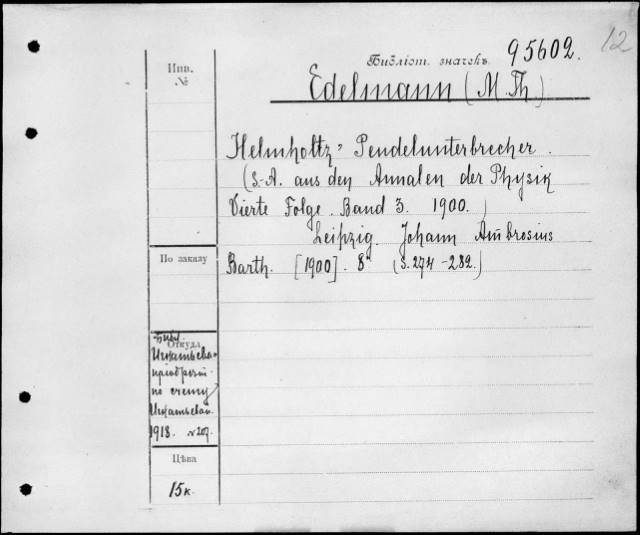 12
Библіот. значекъ 95602.
Edelmann (M. Th)
Инв.
№
Helmholtz' Pendelunterbrecher.
(S.-A. aus den Annalen der Physik
Vierte Folge. Band 3. 1900.)
Leipzig. Johann Ambrosius
Barth. [1900]. 8° (S. 274-282.)
По заказу
Откуда
Библ.
Игнатьева
пріобрѣт.
по счету
Игнатьевой
1918. №207.
Цѣна
15к.